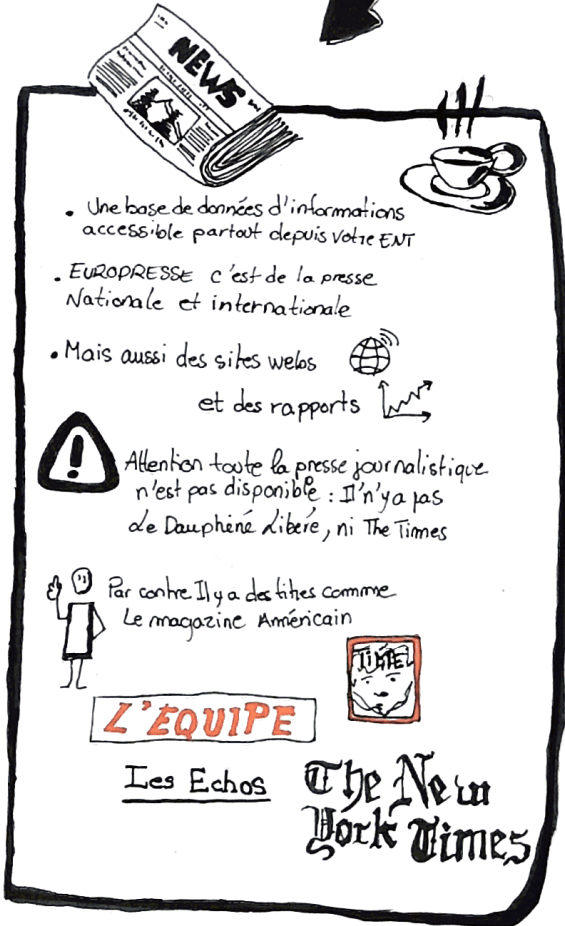 NEWS
. Une base de données d'informations
accessible partout depuis votre ENT
. EUROPRESSE c'est de la presse
Nationale et internationale
. Mais aussi des sites webs
et des rapports
!
Attention toute la presse journalistique
n'est pas disponible : Il n'y a pas
Le Dauphiné Libéré, ni The Times
Par contre Il y a des titres comme
Le magazine Américain
TIME
L'EQUIPE
Les Echos
The New
York Times